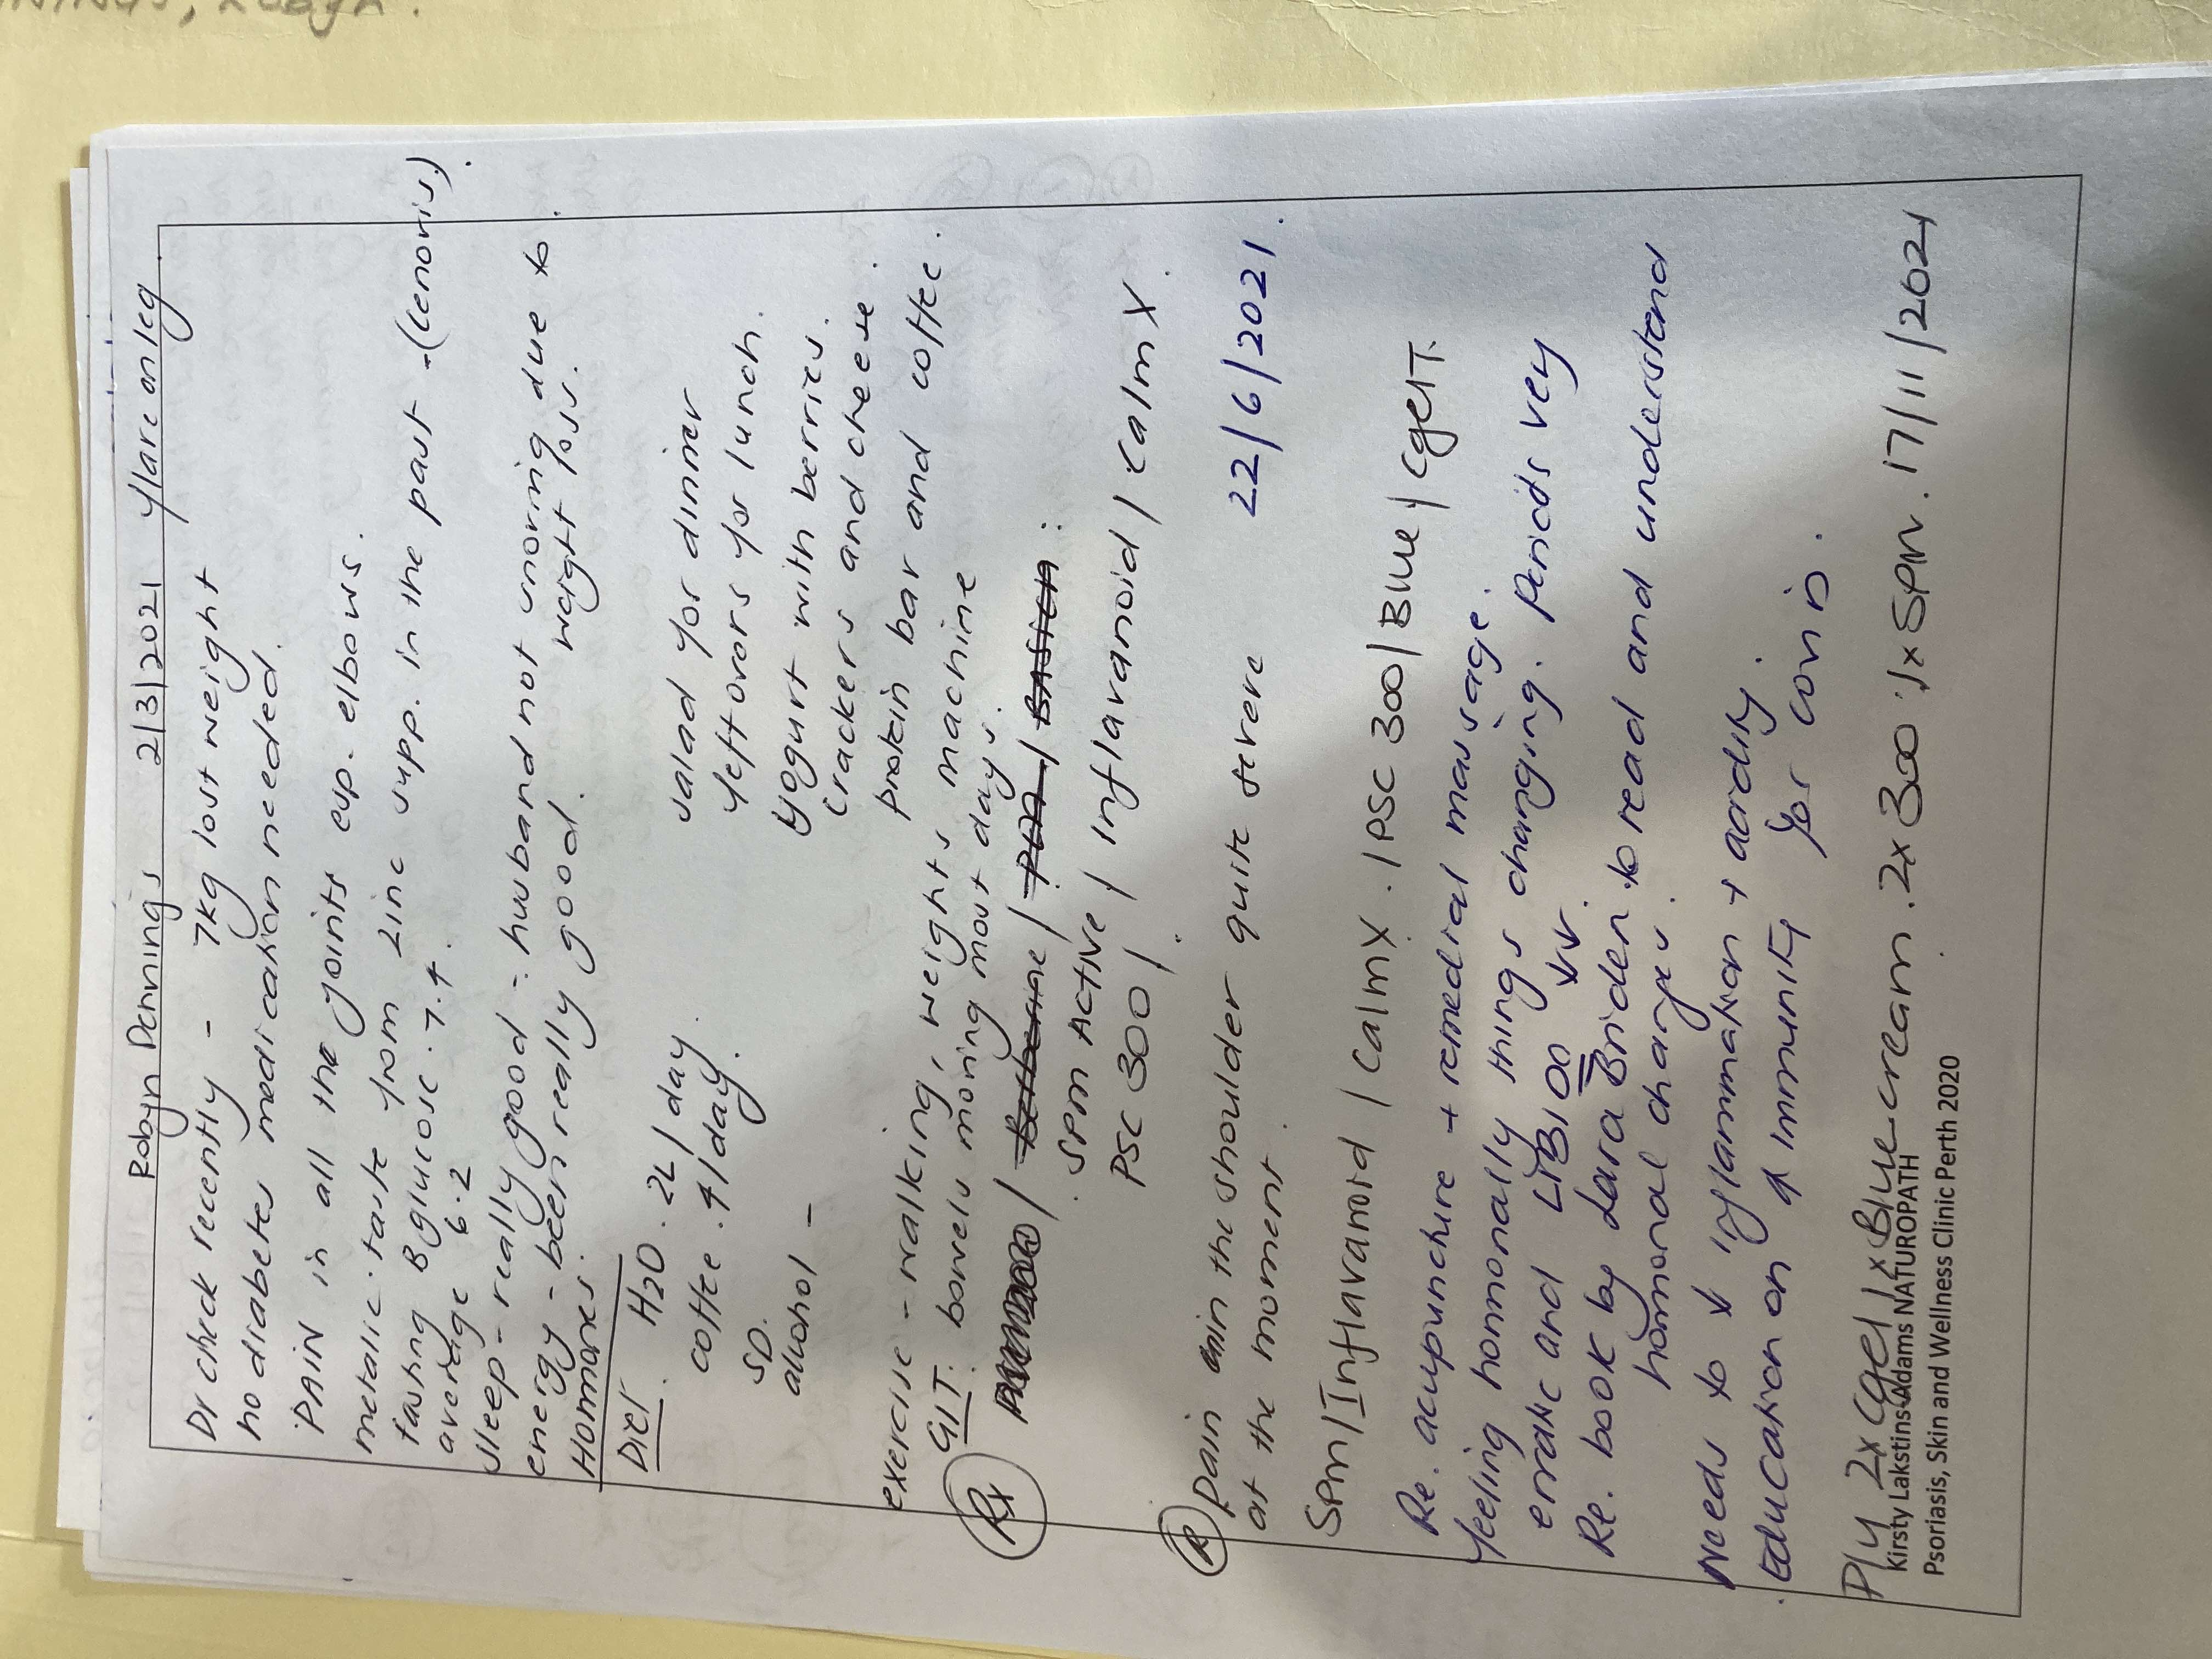 Robyn Dennings 2/3/2021 flare on leg
Dr check recently - 7kg lost weight
no diabetes medication needed.
PAIN in all the joints esp. elbows.
metalic taste from zinc supp. in the past -(cenovis).
fasting B glucose. 7.4.
average 6.2
sleep - really good - husband not snoring due to
weight loss.
energy - been really good.
Hormones.
DIET. H2O. 2L/day
coffee. 4/day.
SD.
alcohol -
salad for dinner
leftovers for lunch.
yogurt with berries.
crackers and cheese.
protein bar and coffee.
exercise - walking, weights machine
GIT: bowels moving most days.
Rx / Berberine / PEA / BASICA :
SPM ACTIVE / Inflavanoid / CalmX.
PSC 300 /.
22/6/2021.
R Pain in the shoulder quite severe
at the moment.
SPM/Inflavanoid / CalmX. / PSC 300/ Blue / CgelT.
Re. acupuncture + remedial massage.
feeling hormonally things changing. Periods vey
erratic and LIBIDO ↓↓.
Re. book by Lara Briden to read and understand
hormonal changes.
Needs to ↓ inflammation + acidity.
Education on ↑ immunity for covid.
P/u 2x Cgel 1x Blue cream. 2x 300 1x SPM. 17/11/2021
Kirsty Lakstins-Adams NATUROPATH
Psoriasis, Skin and Wellness Clinic Perth 2020